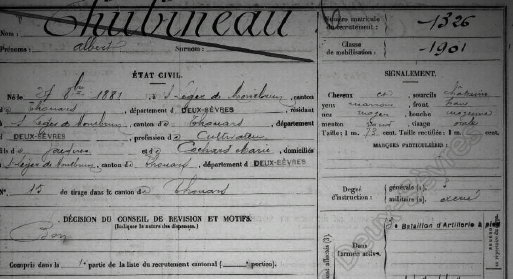 Nom : Chubineau
Numéro matricule du recrutement : 1326
Prénoms : Albert Surnom :
Classe de mobilisation : 1901
ÉTAT CIVIL.
Né le 27 8bre 1881, à St Léger de Montbrun, canton
d Thouars, département d DEUX-SÈVRES, résidant
à St Léger de Montbrun, canton de Thouars, département
d DEUX-SÈVRES, profession de Cultivateur
fils de Jacques et de Marie, domiciliés
à St Léger de Montbrun, canton de Thouars, département d DEUX-SÈVRES
N° 15 de tirage dans le canton de Thouars
SIGNALEMENT.
Cheveux et sourcils
yeux marron, front
nez moyen, bouche moyenne
menton rond, visage ovale
Taille : 1 m. 73 cent. Taille rectifiée : 1 m. cent.
MARQUES PARTICULIÈRES :
Degré d'instruction : générale (1). 3
militaire (2). exercé
DÉCISION DU CONSEIL DE RÉVISION ET MOTIFS.
(Indiquer la nature des dispenses.)
Bon
Compris dans la 1e partie de la liste du recrutement cantonal ( portion).
Dans l'armée active.
Bataillon d'Artillerie à pied
Deux-Sèvres